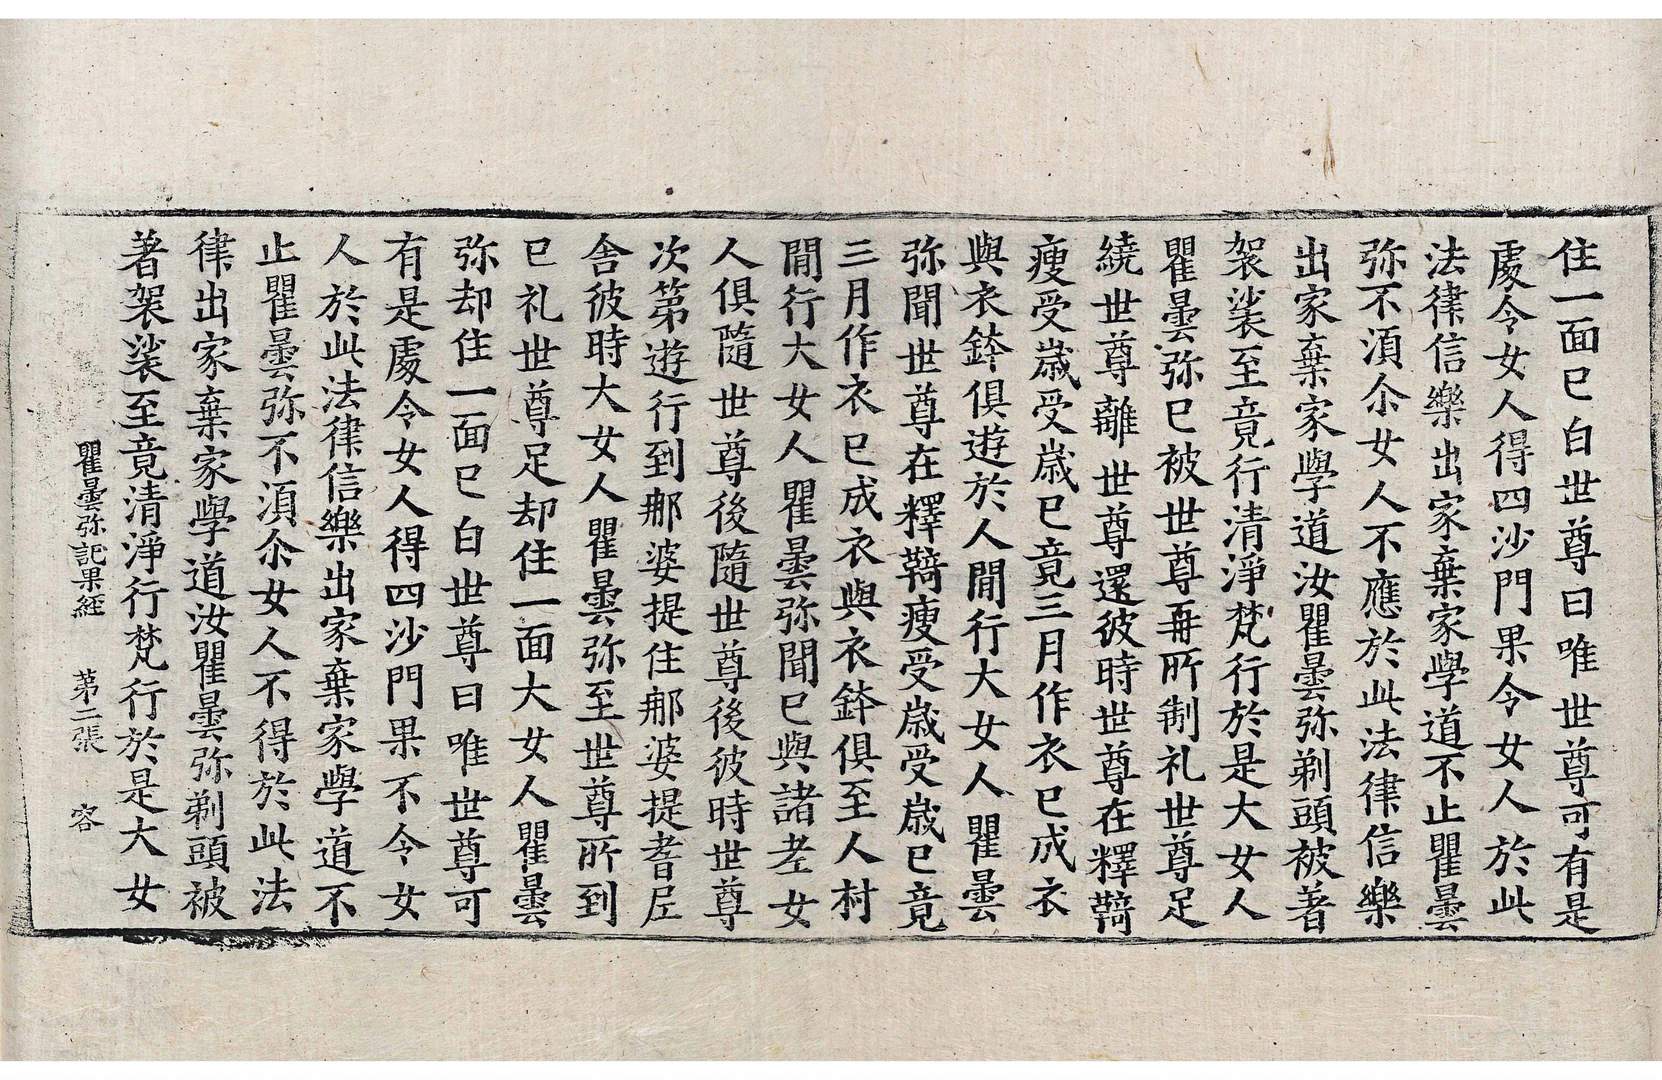 住一面已白世尊曰唯世尊可有是
處令女人得四沙門果令女人於此
法律信樂出家棄家學道不止瞿曇
弥不湏尒女人不應於此法律信樂
出家棄家學道汝瞿曇弥剃頭被著
袈裟至竟行清淨梵行於是大女人
瞿曇弥已被世尊再所制礼世尊足
繞世尊離世尊還彼時世尊在釋鞫
瘦受歲受歲已竟三月作衣已成衣
與衣鉢俱遊於人間行大女人瞿曇
弥聞世尊在釋鞫瘦受歲受歲已竟
三月作衣已成衣與衣鉢俱至人村
間行大女人瞿曇弥聞已與諸老女
人俱隨世尊後隨世尊後彼時世尊
次第遊行到那婆提住那婆提耆尼
舎彼時大女人瞿曇弥至世尊所到
已礼世尊足却住一面大女人瞿曇
弥却住一面已白世尊曰唯世尊可
有是處令女人得四沙門果不令女
人於此法律信樂出家棄家學道不
止瞿曇弥不湏尒女人不得於此法
律出家棄家學道汝瞿曇弥剃頭被
著袈裟至竟清淨行梵行於是大女
瞿曇弥記果經 第二張 容